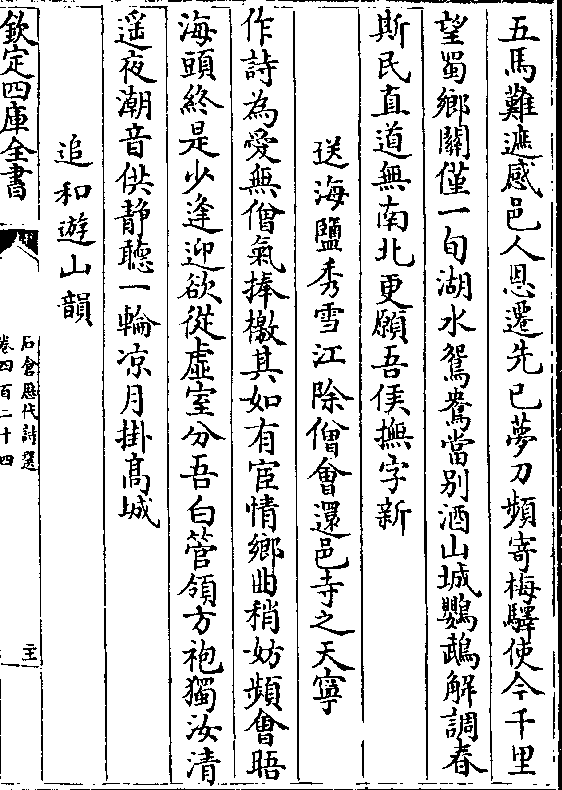 五馬難遮感邑人恩遷先已夢刀頻寄梅驛使今千里
望蜀鄉關僅一旬湖水鴛鴦當别酒山城鸚鵡解調春
斯民直道無南北更願吾侯撫字新
送海鹽秀雪江除僧㑹還邑寺之天寧
作詩為愛無僧氣捧檄其如有宦情鄉曲稍妨頻㑹晤
海頭終是少逢迎欲從虚室分吾白管領方袍獨汝清
遥夜潮音供静聽一輪凉月掛髙城
追和遊山韻
欽定四庫全書
石倉歷代詩選
卷四百二十四